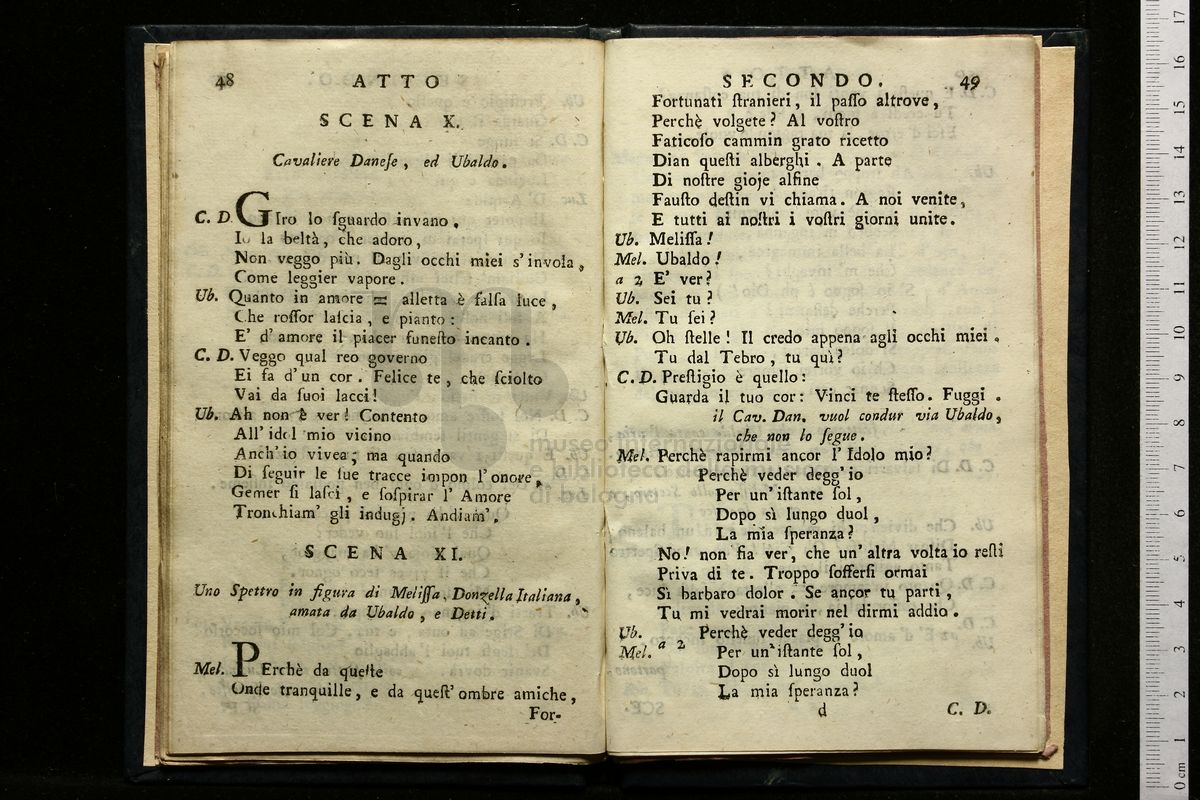 48 ATTO
SCENA X.
Cavaliere Daneſe, ed Ubaldo.
C. D. GIro lo ſguardo invano.
Io la beltà, che adoro,
Non veggo più. Dagli occhi miei s'invola,
Come leggier vapore.
Ub. Quanto in amore = alletta è falſa luce,
Che roſſor laſcia, e pianto:
E' d'amore il piacer funeſto incanto.
C. D. Veggo qual reo governo
Ei fa d'un cor. Felice te, che ſciolto
Vai da ſuoi lacci!
Ub. Ah non è ver! Contento
All'idol mio vicino
Anch'io vivea; ma quando
Di ſeguir le ſue tracce impon l'onore,
Gemer ſi laſci, e ſoſpirar l'Amore
Tronchiam' gli indugj. Andiam'.
SCENA XI.
Uno Spettro in figura di Meliſſa, Donzella Italiana,
amata da Ubaldo, e Detti.
Mel. PErchè da queſte
Onde tranquille, e da queſt'ombre amiche,
For-
SECONDO. 49
Fortunati ſtranieri, il paſſo altrove,
Perchè volgete? Al voſtro
Faticoſo cammin grato ricetto
Dian queſti alberghi. A parte
Di noſtre gioje alfine
Fauſto deſtin vi chiama. A noi venite,
E tutti ai noſtri i voſtri giorni unite.
Ub. Meliſſa!
Mel. Ubaldo!
a 2 E' ver?
Ub. Sei tu?
Mel. Tu ſei?
Ub. Oh ſtelle! Il credo appena agli occhi miei.
Tu dal Tebro, tu quì?
C. D. Preſtigio è quello:
Guarda il tuo cor: Vinci te ſteſſo. Fuggi.
il Cav. Dan. vuol condur via Ubaldo,
che non lo ſegue.
Mel. Perchè rapirmi ancor l'Idolo mio?
Perchè veder degg'io
Per un'iſtante ſol,
Dopo sì lungo duol,
La mia ſperanza?
No! non fia ver, che un'altra volta io reſti
Priva di te. Troppo ſofferſi ormai
Sì barbaro dolor. Se ancor tu parti,
Tu mi vedrai morir nel dirmi addio.
Ub. Perchè veder degg'io
Mel. a 2 Per un'iſtante ſol,
Dopo sì lungo duol
La mia ſperanza?
d C. D.
museo internazionale
e biblioteca della musica
di bologna
0 cm 1 2 3 4 5 6 7 8 9 10 11 12 13 14 15 16 17